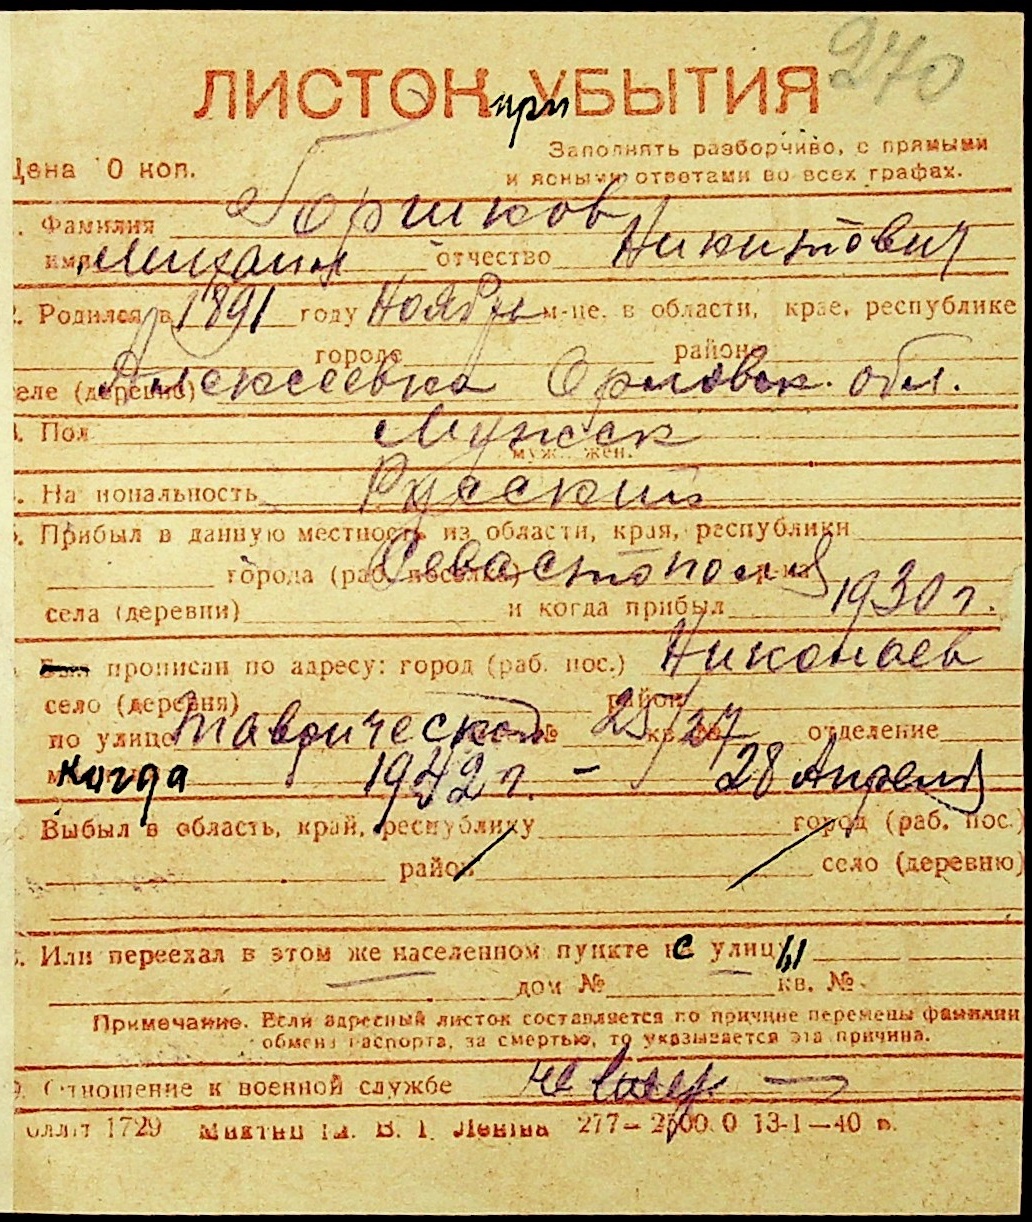 270
ЛИСТОК при УБЫТИЯ
Цена 0 коп.
Заполнять разборчиво, с прямыми
и ясными ответами во всех графах.
Фамилия Горшков
имя Михаил отчество Никитович
2. Родился в 1891 году Ноябрь м-це, в области, крае, республике
городе район
селе (деревне) Алексеевка Орловск. обл.
3. Пол Мужск
муж. жен.
На иональность Русский
5. Прибыл в данную местность из области, края, республики
города (раб. поселка) Севастополя р-на
села (деревни) и когда прибыл 1930 г.
Был прописан по адресу: город (раб. пос.) Николаев
село (деревня) район
по улице Таврической № 25/27 кв. № отделение
Когда 1942 г. - 28 Апреля
Выбыл в область, край, республику город (раб. пос.)
район село (деревню)
8. Или переехал в этом же населенном пункте с улицы
дом № кв. №
Примечание. Если адресный листок составляется по причине перемены фамилии
обмена паспорта, за смертью, то указывается эта причина.
9. Отношение к военной службе
1729 им. В. І. Леніна 277— 2500 0 13-1—40 в.